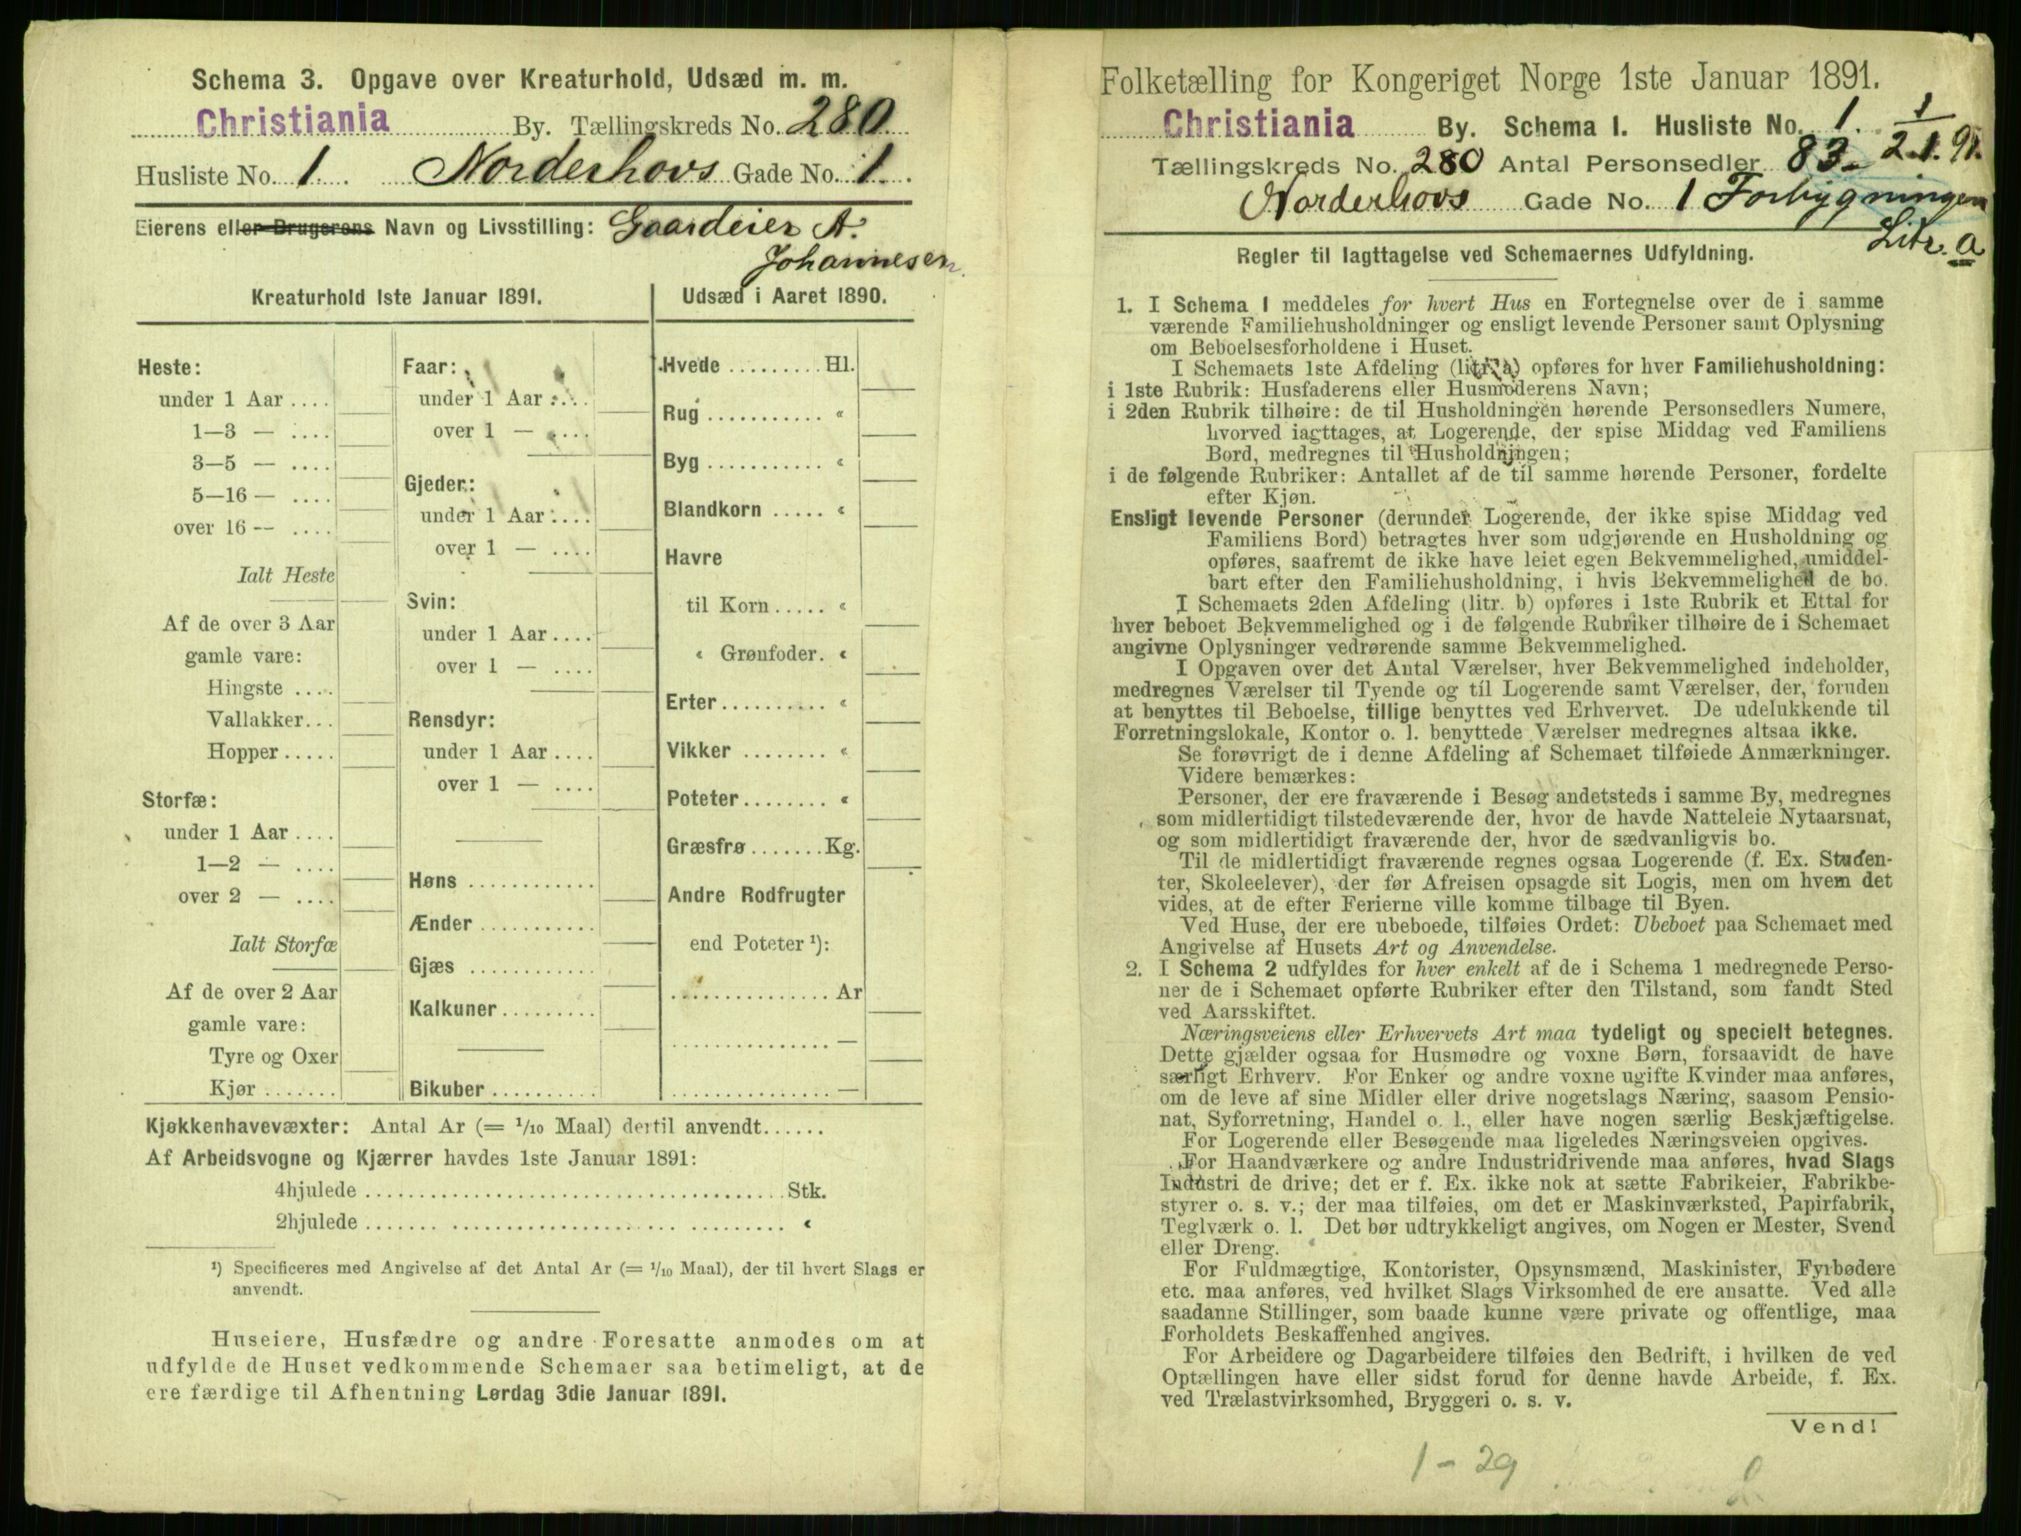 Schema 3. Opgave over Kreaturhold, Udsæd m. m.
Christiania By. Tællingskreds No. 280
Husliste No. 1. Norderhovs Gade No. 1.
Eierens eller Brugerens Navn og Livsstilling: Gaardeier A.
Johannesen.
Kreaturhold 1ste Januar 1891.
Heste:
under 1 Aar ....
1—3 — ....
3—5 — ....
5—16 — ....
over 16 — ....
Ialt Heste
Af de over 3 Aar
gamle vare:
Hingste ....
Vallakker...
Hopper .....
Storfæ:
under 1 Aar ....
1—2 — ....
over 2 — ....
Ialt Storfæ
Af de over 2 Aar
gamle vare:
Tyre og Oxer
Kjør .......
Faar:
under 1 Aar ....
over 1 — ....
Gjeder:
under 1 Aar ....
over 1 — ....
Svin:
under 1 Aar ....
over 1 — ....
Rensdyr:
under 1 Aar ....
over 1 — ....
Høns ............
Ænder ...........
Gjæs ............
Kalkuner.........
Bikuber ..........
Udsæd i Aaret 1890.
Hvede ......... Hl.
Rug ........... «
Byg ........... «
Blandkorn ..... «
Havre
til Korn ..... «
« Grønfoder. «
Erter.......... «
Vikker ........ «
Poteter........ «
Græsfrø ....... Kg.
Andre Rodfrugter
end Poteter ¹):
............... Ar
............... —
............... —
Kjøkkenhavevæxter: Antal Ar (= 1/10 Maal) dertil anvendt......
Af Arbeidsvogne og Kjærrer havdes 1ste Januar 1891:
4hjulede ........................................ Stk.
2hjulede ........................................ «
¹) Specificeres med Angivelse af det Antal Ar (= 1/10 Maal), der til hvert Slags er
anvendt.
Huseiere, Husfædre og andre Foresatte anmodes om at
udfylde de Huset vedkommende Schemaer saa betimeligt, at de
ere færdige til Afhentning Lørdag 3die Januar 1891.
Folketælling for Kongeriget Norge 1ste Januar 1891.
Christiania By. Schema 1. Husliste No. 1. 1/
Tællingskreds No. 280 Antal Personsedler 83. 2.1.91.
Norderhovs Gade No. 1 Forbygningen
Litr. a
Regler til Iagttagelse ved Schemaernes Udfyldning.
1. I Schema 1 meddeles for hvert Hus en Fortegnelse over de i samme
værende Familiehusholdninger og ensligt levende Personer samt Oplysning
om Beboelsesforholdene i Huset.
I Schemaets 1ste Afdeling (litr. a) opføres for hver Familiehusholdning:
i 1ste Rubrik: Husfaderens eller Husmoderens Navn;
i 2den Rubrik tilhøire: de til Husholdningen hørende Personsedlers Numere,
hvorved iagttages, at Logerende, der spise Middag ved Familiens
Bord, medregnes til Husholdningen;
i de følgende Rubriker: Antallet af de til samme hørende Personer, fordelte
efter Kjøn.
Ensligt levende Personer (derunder Logerende, der ikke spise Middag ved
Familiens Bord) betragtes hver som udgjørende en Husholdning og
opføres, saafremt de ikke have leiet egen Bekvemmelighed, umiddel-
bart efter den Familiehusholdning, i hvis Bekvemmelighed de bo.
I Schemaets 2den Afdeling (litr. b) opføres i 1ste Rubrik et Ettal for
hver beboet Bekvemmelighed og i de følgende Rubriker tilhøire de i Schemaet
angivne Oplysninger vedrørende samme Bekvemmelighed.
I Opgaven over det Antal Værelser, hver Bekvemmelighed indeholder,
medregnes Værelser til Tyende og til Logerende samt Værelser, der, foruden
at benyttes til Beboelse, tillige benyttes ved Erhvervet. De udelukkende til
Forretningslokale, Kontor o. l. benyttede Værelser medregnes altsaa ikke.
Se forøvrigt de i denne Afdeling af Schemaet tilføiede Anmærkninger.
Videre bemærkes:
Personer, der ere fraværende i Besøg andetsteds i samme By, medregnes
som midlertidigt tilstedeværende der, hvor de havde Natteleie Nytaarsnat,
og som midlertidigt fraværende der, hvor de sædvanligvis bo.
Til de midlertidigt fraværende regnes ogsaa Logerende (f. Ex. Studen-
ter, Skoleelever), der før Afreisen opsagde sit Logis, men om hvem det
vides, at de efter Ferierne ville komme tilbage til Byen.
Ved Huse, der ere ubeboede, tilføies Ordet: Ubeboet paa Schemaet med
Angivelse af Husets Art og Anvendelse.
2. I Schema 2 udfyldes for hver enkelt af de i Schema 1 medregnede Perso-
ner de i Schemaet opførte Rubriker efter den Tilstand, som fandt Sted
ved Aarsskiftet.
Næringsveiens eller Erhvervets Art maa tydeligt og specielt betegnes.
Dette gjælder ogsaa for Husmødre og voxne Børn, forsaavidt de have
særligt Erhverv. For Enker og andre voxne ugifte Kvinder maa anføres,
om de leve af sine Midler eller drive nogetslags Næring, saasom Pensio-
nat, Syforretning, Handel o. l., eller have nogen særlig Beskjæftigelse.
For Logerende eller Besøgende maa ligeledes Næringsveien opgives.
For Haandværkere og andre Industridrivende maa anføres, hvad Slags
Industri de drive; det er f. Ex. ikke nok at sætte Fabrikeier, Fabrikbe-
styrer o. s. v.; der maa tilføies, om det er Maskinværksted, Papirfabrik,
Teglværk o. l. Det bør udtrykkeligt angives, om Nogen er Mester, Svend
eller Dreng.
For Fuldmægtige, Kontorister, Opsynsmænd, Maskinister, Fyrbødere
etc. maa anføres, ved hvilket Slags Virksomhed de ere ansatte. Ved alle
saadanne Stillinger, som baade kunne være private og offentlige, maa
Forholdets Beskaffenhed angives.
For Arbeidere og Dagarbeidere tilføies den Bedrift, i hvilken de ved
Optællingen have eller sidst forud for denne havde Arbeide, f. Ex.
ved Trælastvirksomhed, Bryggeri o. s. v.
Vend!
1 - 29